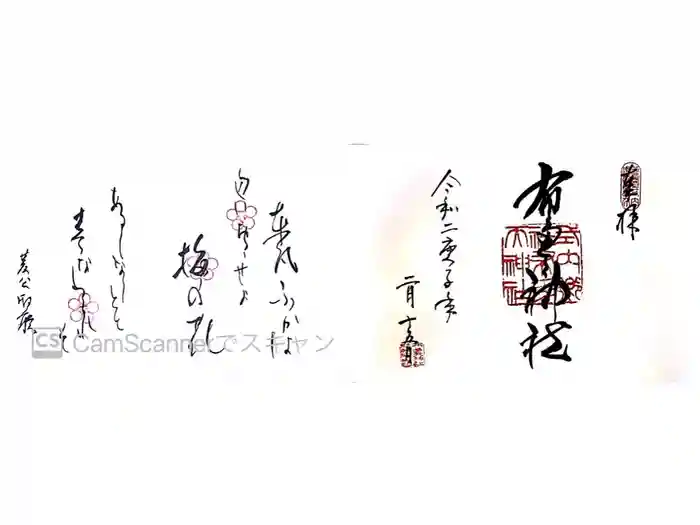 奉拝
神社
令和二庚子歳
二月十五日
東風ふかば
匂ひおこせよ
梅の花
あるじなしとて
春なわすれそ
菅公御歌
CS CamScannerでスキャン